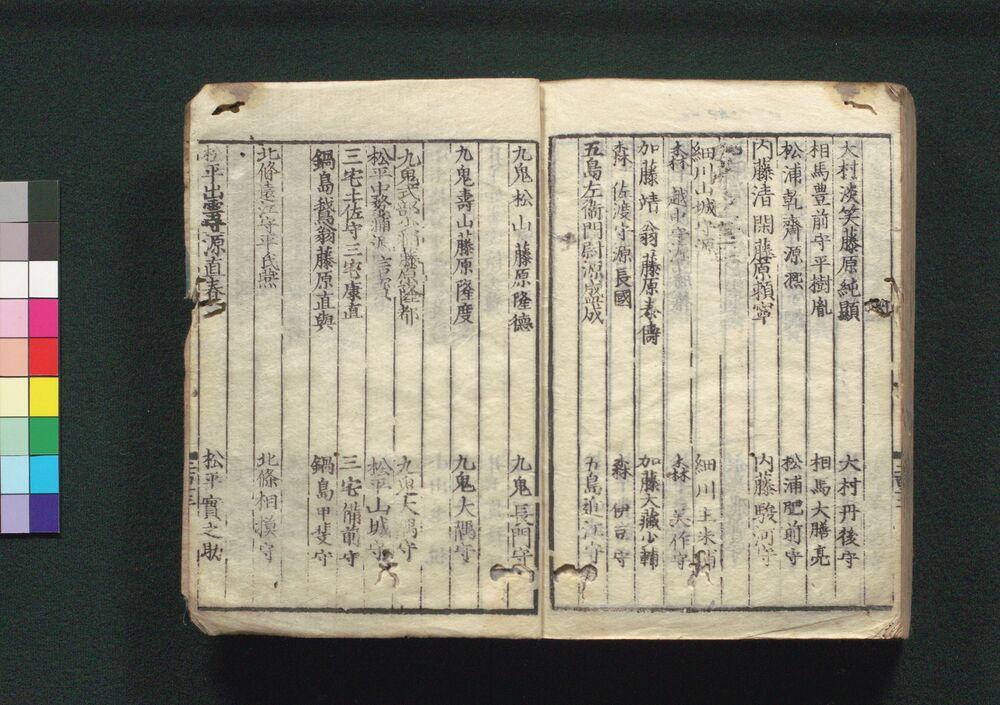 大村淡笑藤原純顯　大村丹後守
相馬豊前守平樹胤　相馬大膳亮
松浦乾齋源熈　松浦肥前守
内藤清閑藤原頼寧　内藤駿河守
細川山城守源　細川主米輔
森越中守　森美作守
加藤靖翁藤原泰儔　加藤大藏少輔
森佐渡守源長國　森伊豆守
五島左衞門尉源盛成　五島近江守
九鬼松山藤原隆德　九鬼長門守
九鬼壽山藤原隆度　九鬼大隅守
九鬼式部少輔藤原隆都　九鬼大隅守
松平中務輔源信寳　松平山城守
三宅土佐守三宅康直　三宅備前守
鍋島鷲翁藤原直與　鍋島甲斐守
北條遠江守平氏燕　北條相模守
松平出雲守源直春　松平寳之助